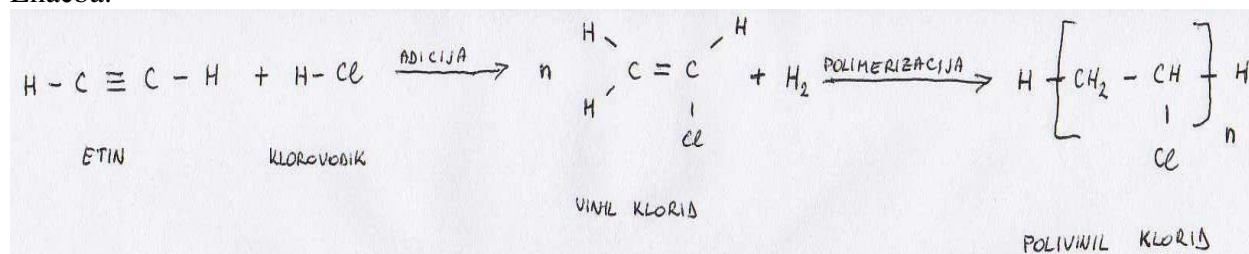 H - C ≡ C - H + H - Cl ADICIJA → n H H C = C H Cl + H₂ POLIMERIZACIJA → H [ CH₂ - CH Cl ]n H
ETIN KLOROVODIK
VINIL KLORID
POLIVINIL KLORID